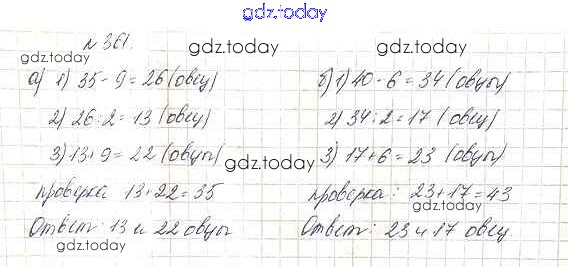 gdz.today
№ 361.
gdz.today gdz.today
а) 1) 35 - 9 = 26 (овец)
2) 26 : 2 = 13 (овец)
3) 13 + 9 = 22 (овцы)
проверка 13 + 22 = 35
Ответ: 13 и 22 овцы
gdz.today
б) 1) 40 - 6 = 34 (овцы)
2) 34 : 2 = 17 (овец)
gdz.today
3) 17 + 6 = 23 (овцы)
проверка: 23 + 17 = 43
gdz.today
Ответ: 23 и 17 овец
gdz.today